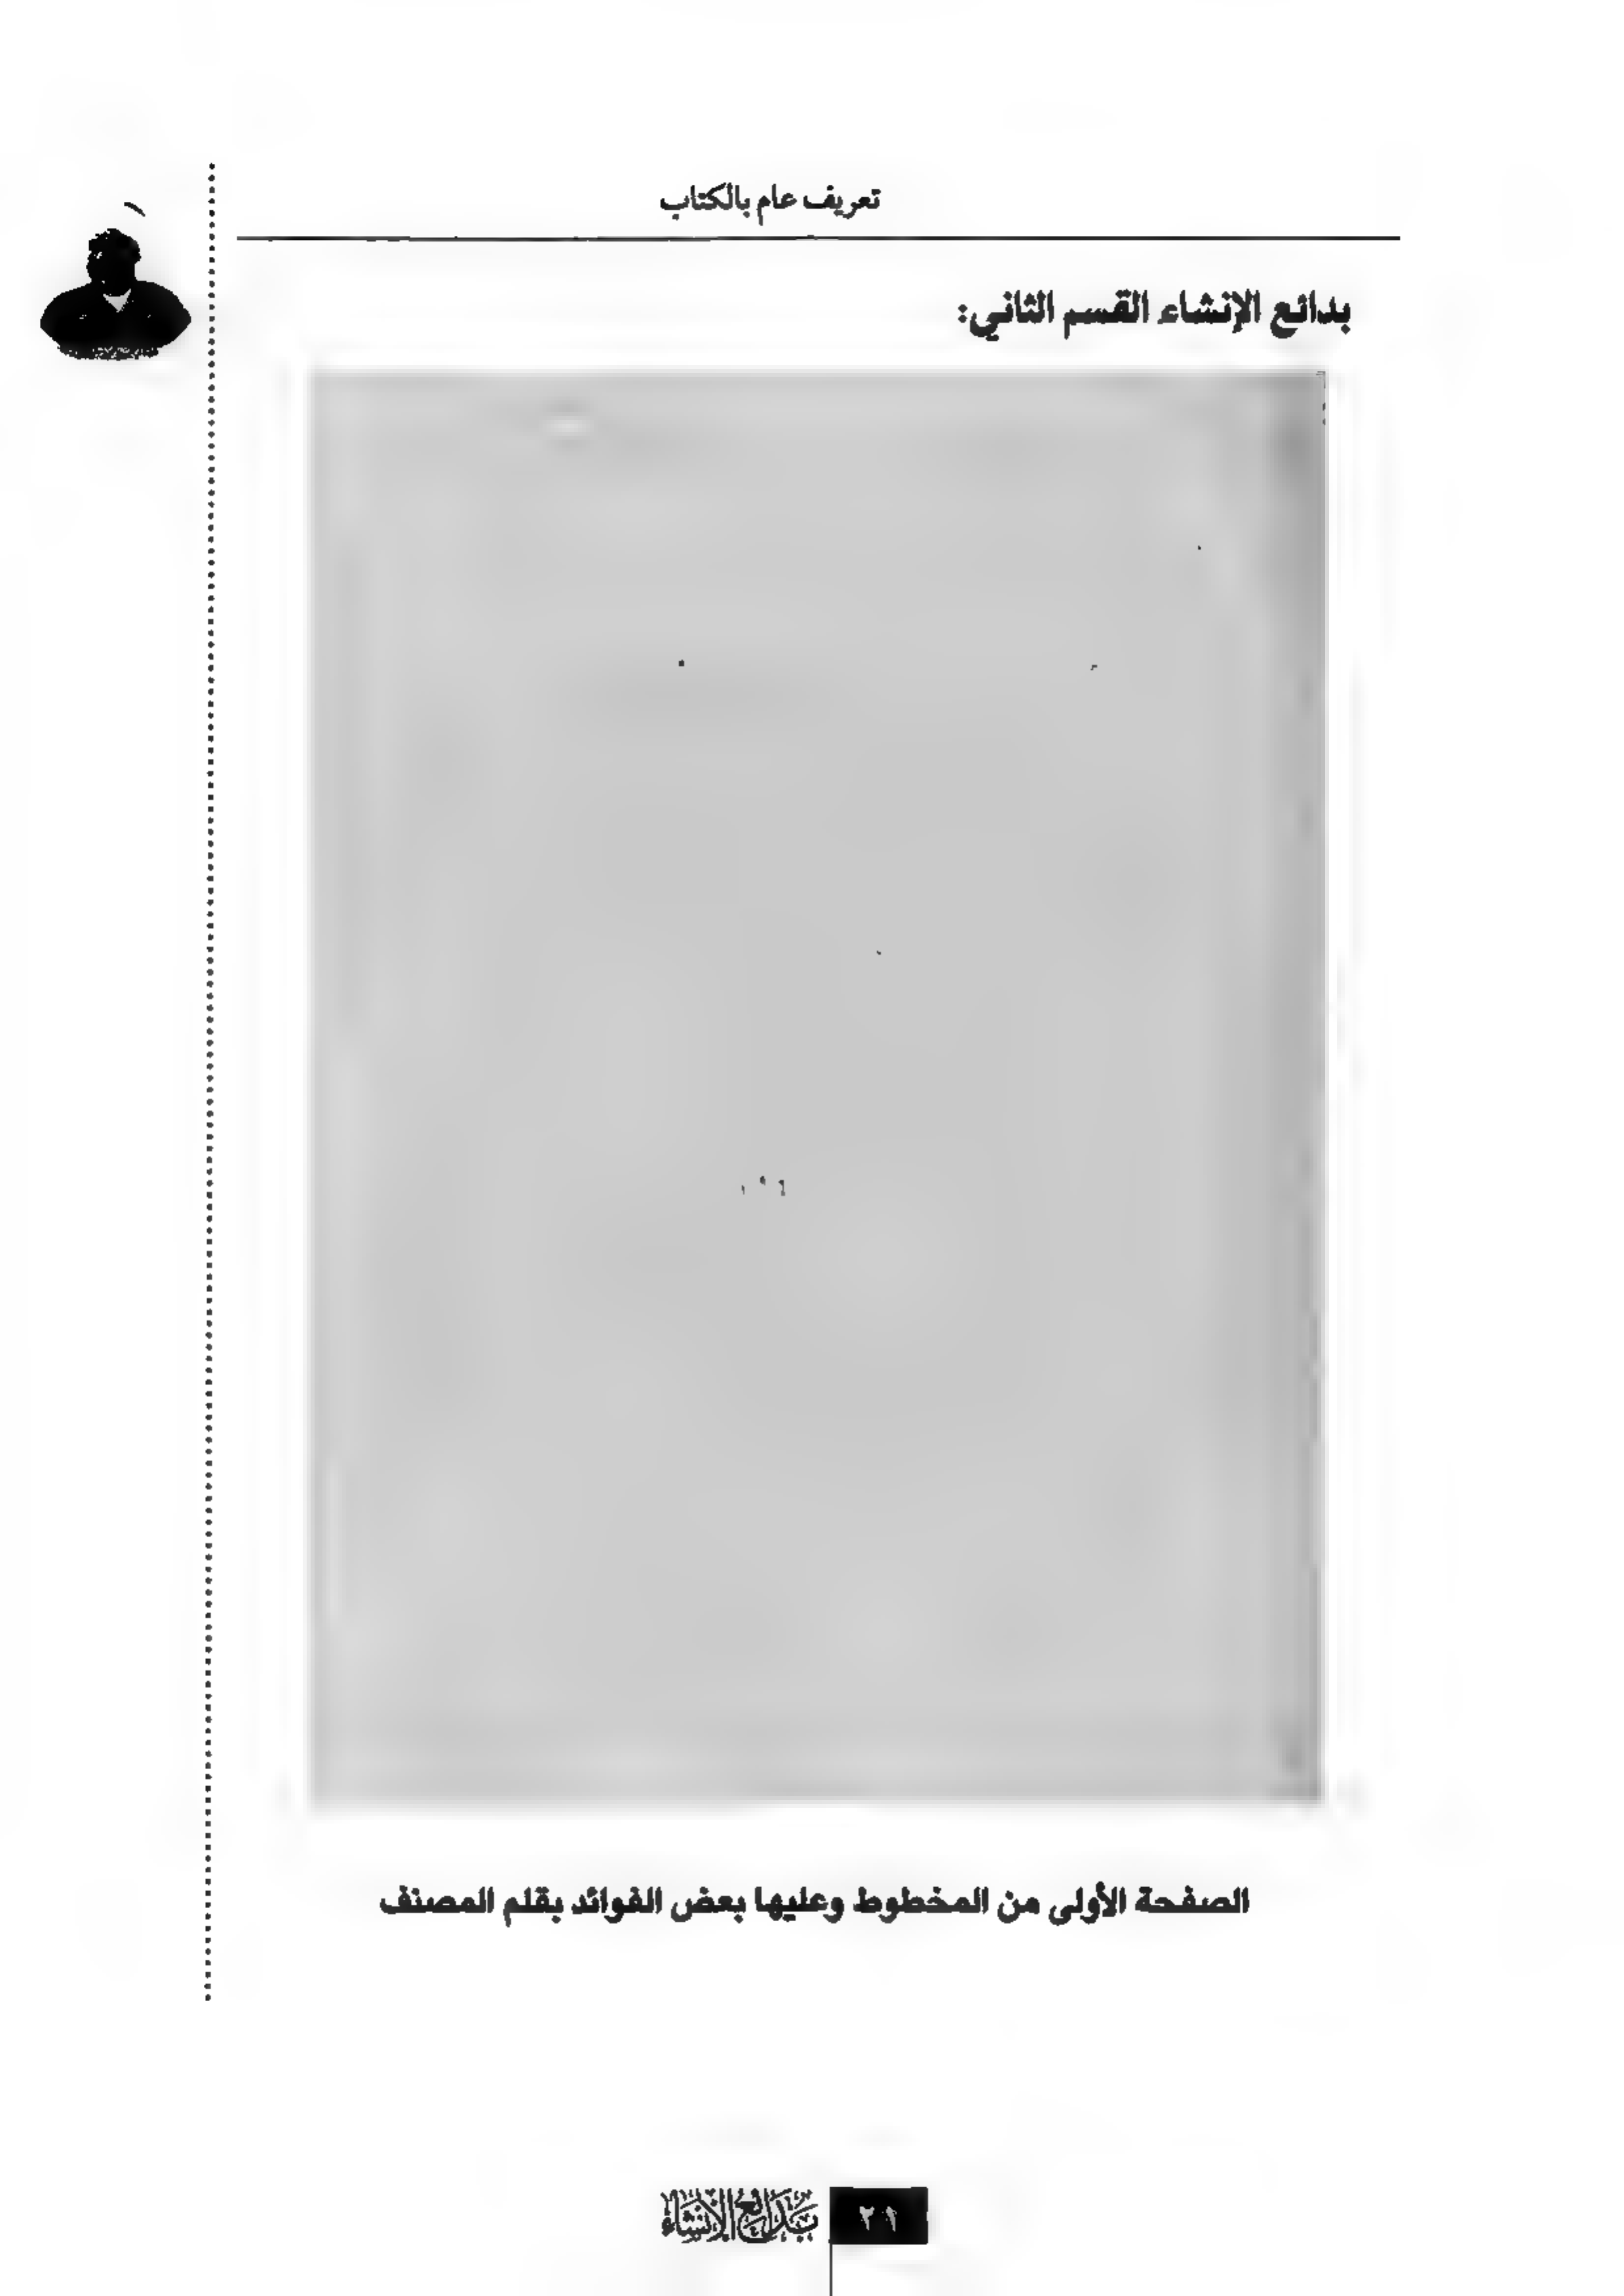 تعريف عام بالكتاب
بدائع الإنشاء القسم الثاني:
الصفحة الأولى من المخطوط وعليها بعض الفوائد بقلم المصنف
بدائع الإنشاء
٢١